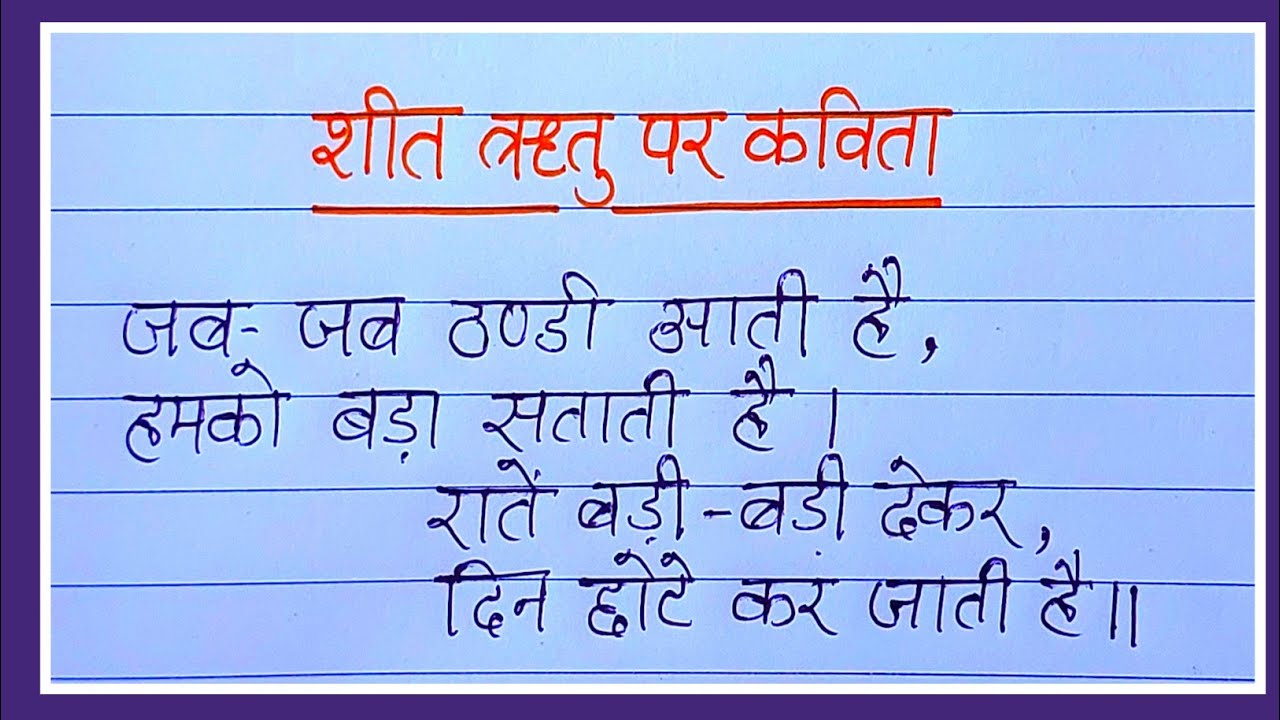 शीत ऋतु पर कविता
जब- जब ठण्डी आती है,
हमको बड़ा सताती है।
रातें बड़ी-बड़ी देकर,
दिन छोटे कर जाती है॥